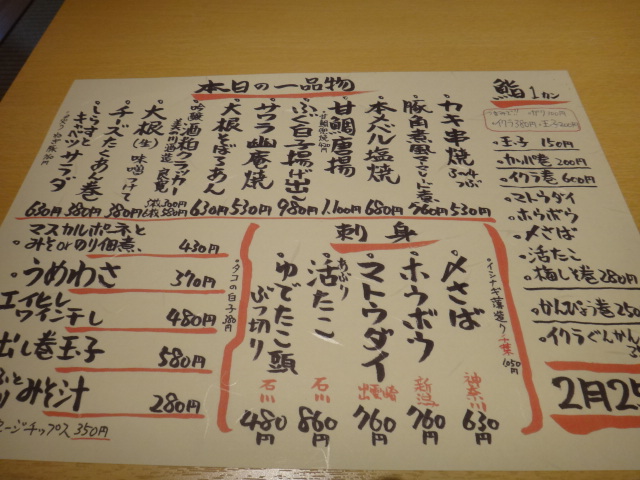 本日の一品物
カキ串焼 530円
豚角煮 760円
本メバル塩焼 680円
甘鯛唐揚 1,100円
ふぐ白子揚げ出し 980円
サワラ幽庵焼 530円
大根そぼろあん 630円
吟醸酒粕クラッカー
大根(生)味噌つけて
チーズたくあん巻 380円
しらすとキャベツサラダ 630円
マスカルポーネと
みそorのり佃煮 430円
うめわさ 370円
エイヒレ
ワインテレ 480円
出し巻玉子 580円
みそ汁 280円
ージチップス 350円
刺身
イシナギ薄造り 千葉 1050円
〆さば 神奈川 630円
ホウボウ 新潟 760円
マトウダイ 出雲崎 760円
あぶり
活たこ 石川 860円
ゆでたこ頭
ぶつ切り 石川 480円
タコの白子 380円
鮨 1カン
玉子 150円
カッパ巻 200円
イクラ巻 600円
マトウダイ
ホウボウ
〆さば
活たこ
梅しそ巻 280円
かんぴょう巻 250
イクラぐんかん
2月25